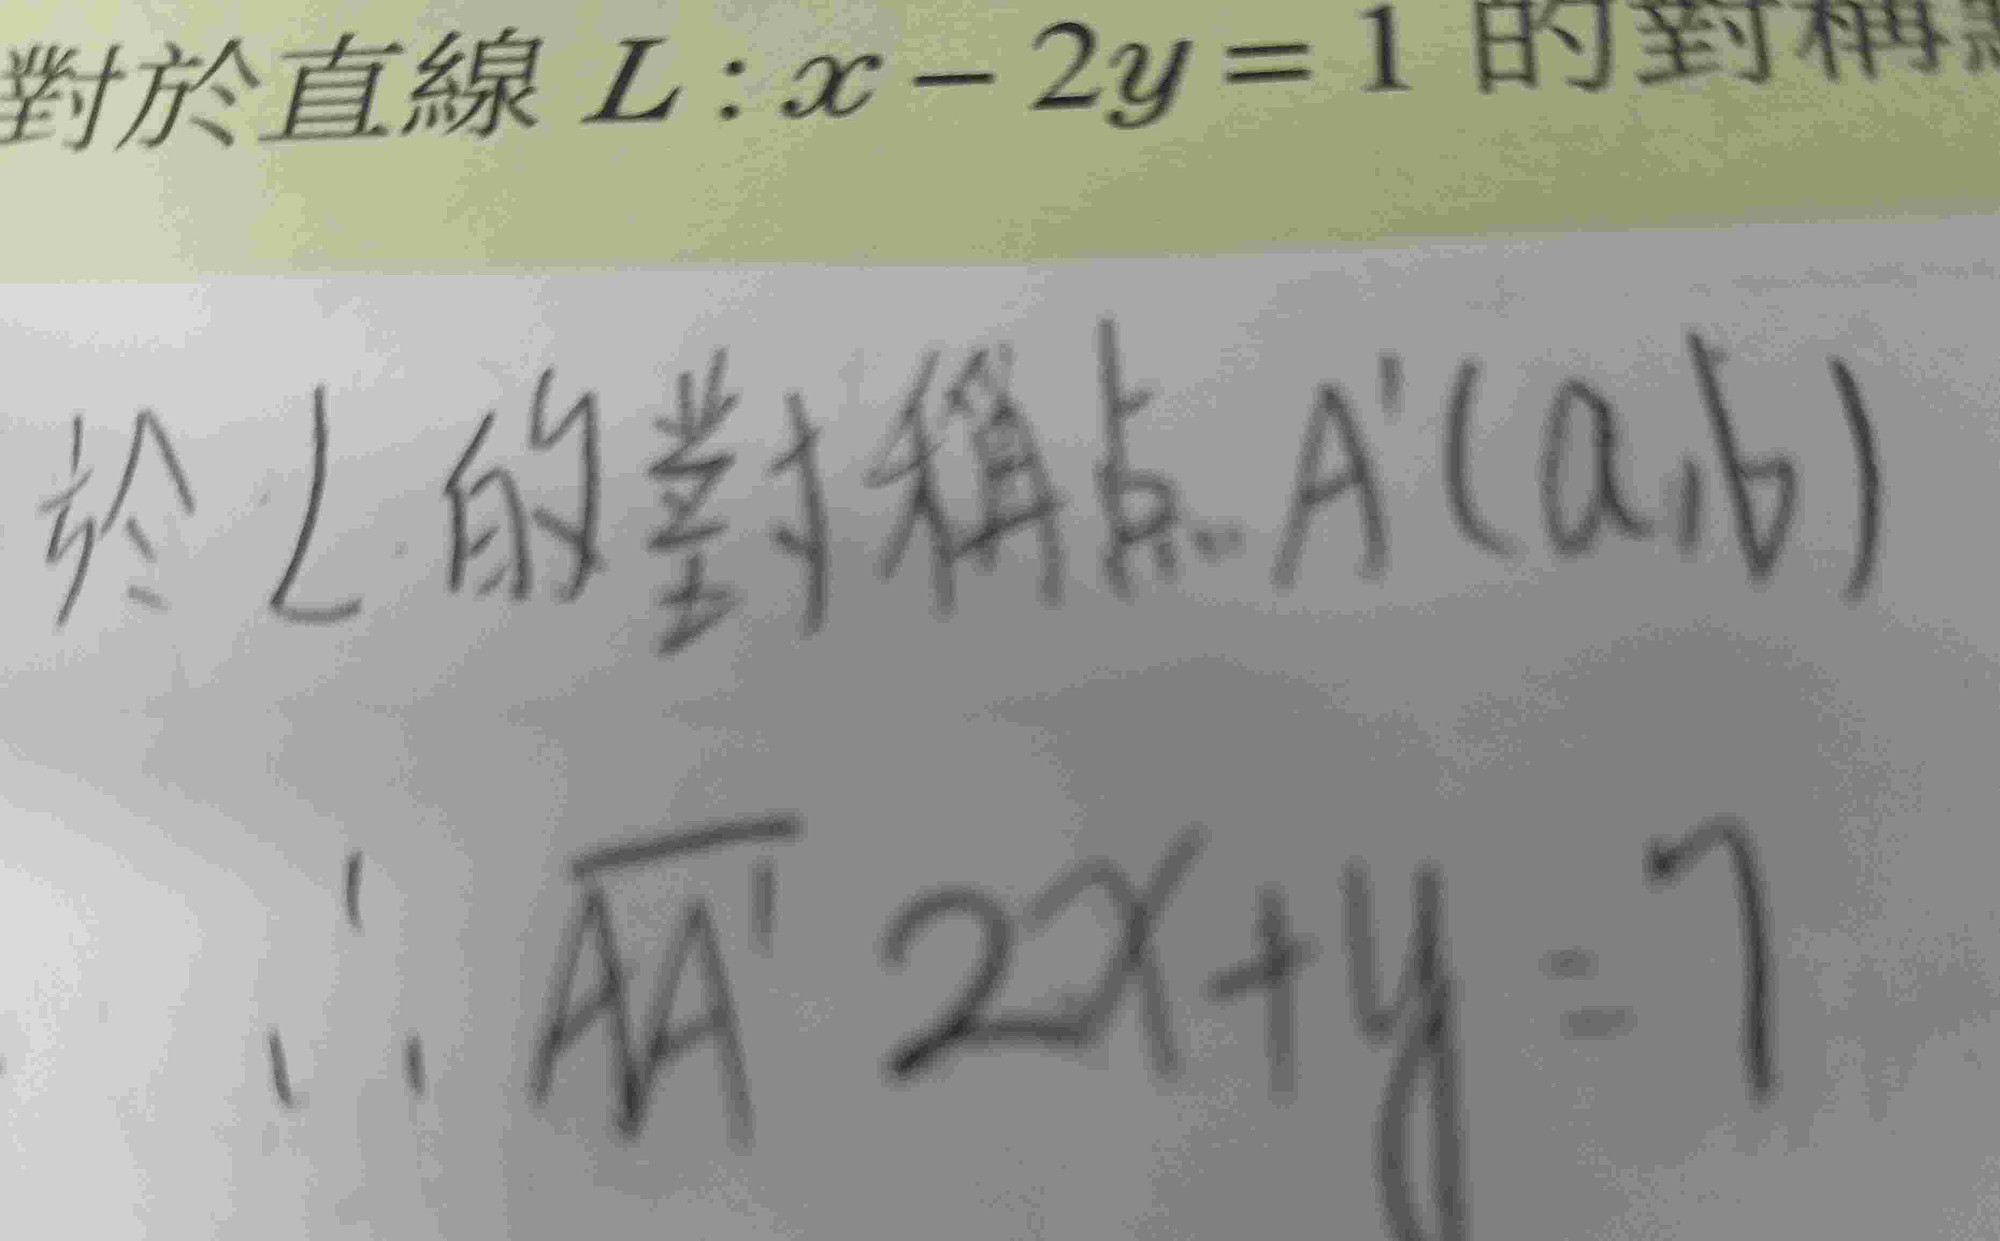 對於直線 L : x − 2y = 1 的對稱
於 L 的對稱点 A'(a,b)
∴ AA' 2x+y=7